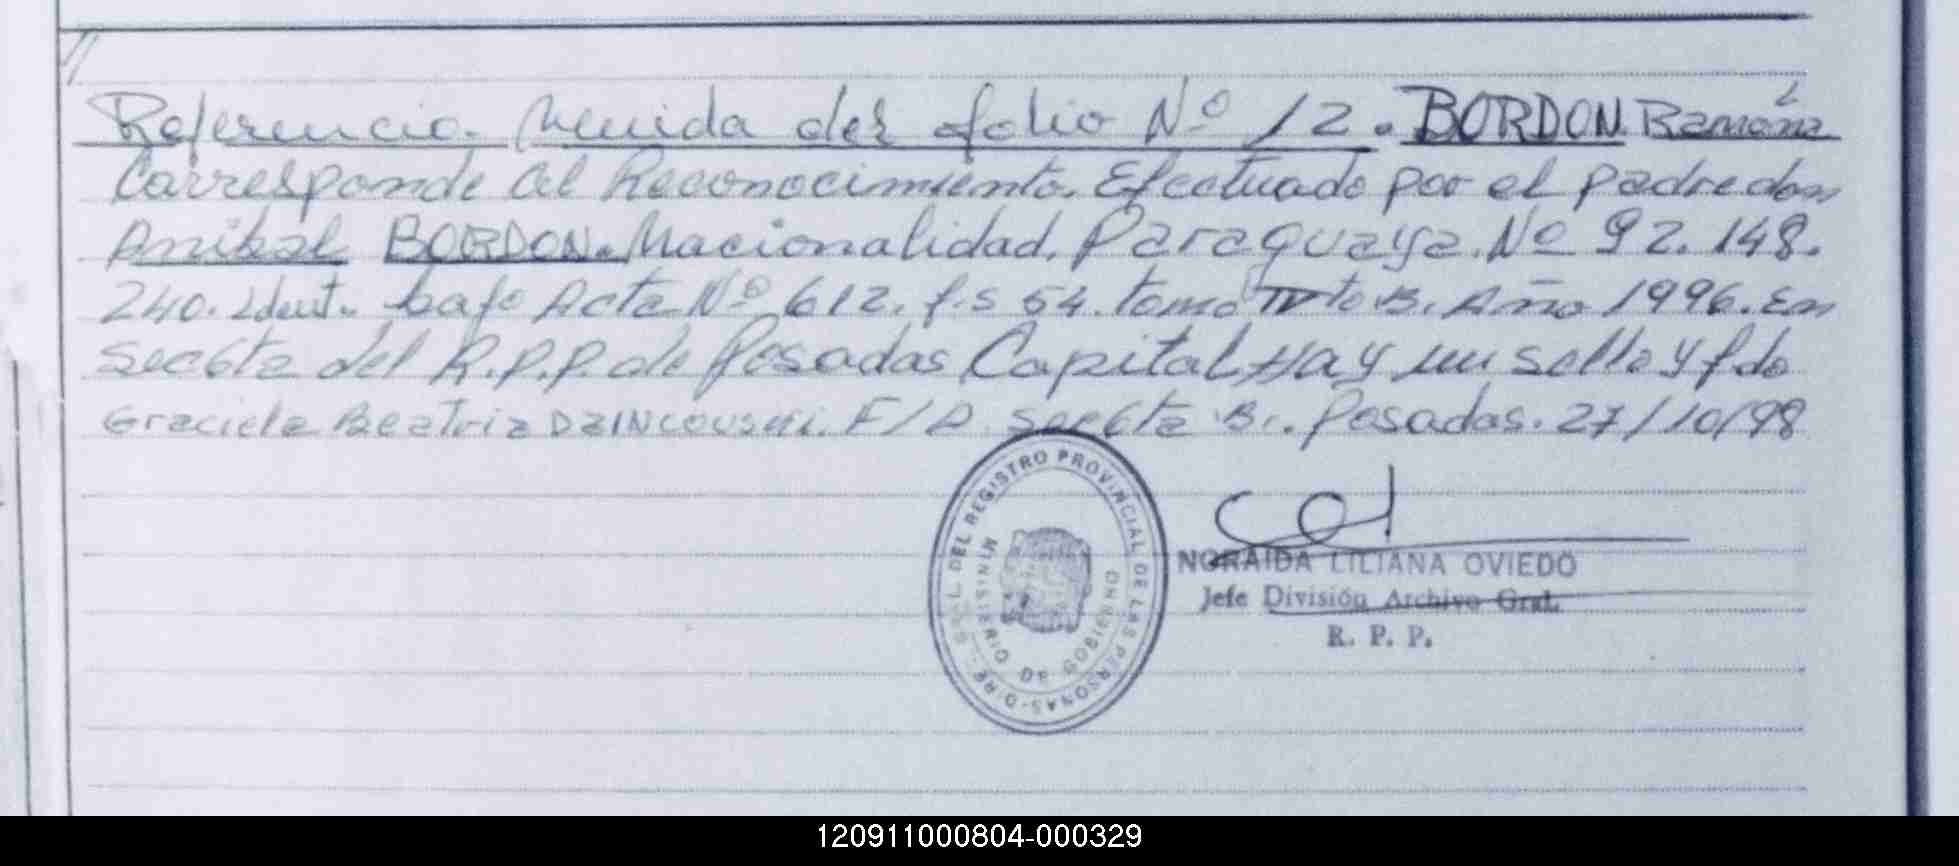 //
Referencia. Venida del folio Nº 12. BORDON Ramona
Corresponde al Reconocimiento. Efectuado por el padre don
Anibal BORDON. Nacionalidad. Paraguaya. Nº 92.148.
240. Ident. bajo Acta Nº 612. fs 54. tomo IV to B. Año 1996. En
Sec 6ta del R.P.P. de Posadas Capital. Hay un sello y fdo
Graciela Beatriz. F/D. Sec 6ta B. Posadas. 27/10/98
DEL REGISTRO PROVINCIAL DE LAS PERSONAS
MINISTERIO DE GOBIERNO
NORAIDA LILIANA OVIEDO
Jefe División Archivo Gral.
R. P. P.
120911000804-000329